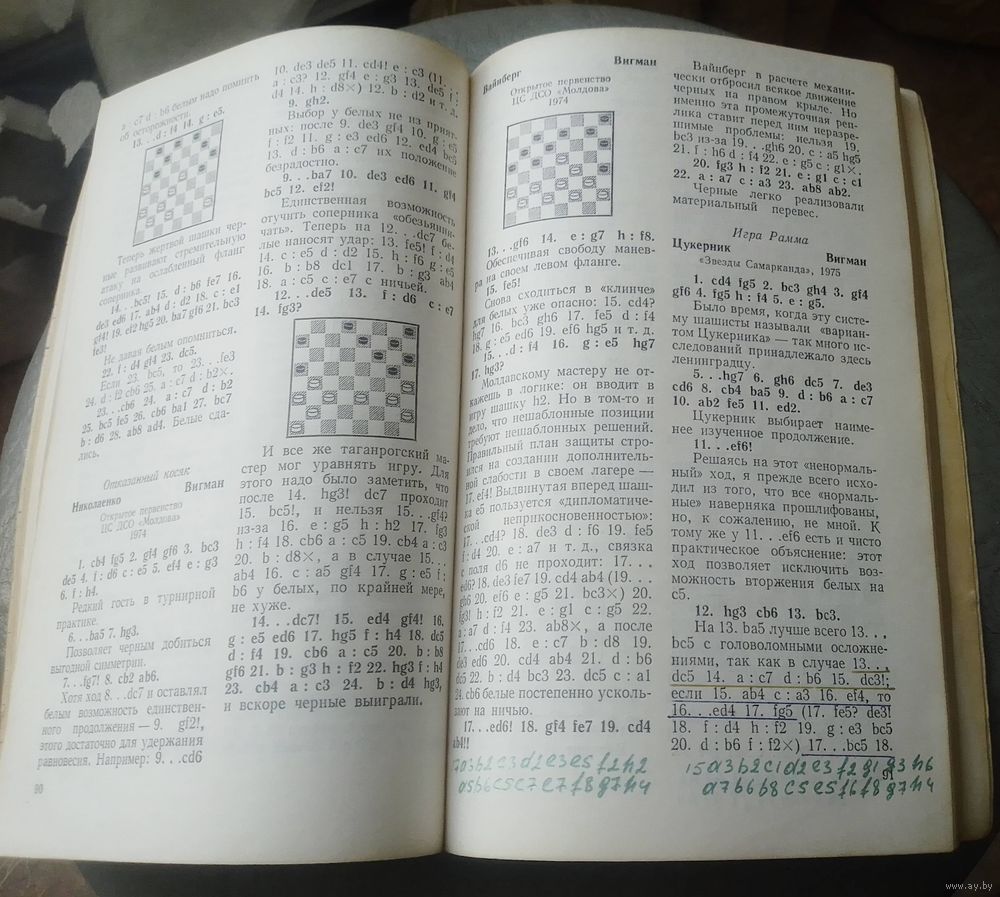 a : c7 d : b6 белым надо помнить
об осторожности.
13. . .d : f4 14. g : e5.
Теперь жертвой шашки чер-
ные развивают стремительную
атаку на ослабленный фланг
соперника.
14. . .bc5! 15. d : b6 fe7 16.
de3 ed6 17. ab4 d : d2 18. c : e1
gf4! 19. ef2 hg5 20. ba7 gf6 21. bc3
fe3!
Не давая белым опомниться.
22. f : d4 gf4 23. dc5.
Если 23. bc5, то 23. . .fe3
24. d : f2 cb6 25. a : c7 d : b2×.
23. . .cb6 24. a : c7 d : b2
25. bc5 fe5 26. cb6 ba1 27. bc7
b : d6 28. ab8 ad4. Белые сда-
лись.
Отказанный косяк
Николаенко Вигман
Открытое первенство
ЦС ДСО «Молдова»
1974
1. cb4 fg5 2. gf4 gf6 3. bc3
de5 4. f : d6 c : e5 5. ef4 e : g3
6. f : h4.
Редкий гость в турнирной
практике.
6. . .ba5 7. hg3.
Позволяет черным добиться
выгодной симметрии.
7. . .fg7! 8. cb2 ab6.
Хотя ход 8. . .dc7 и оставлял
белым возможность единствен-
ного продолжения — 9. gf2!,
этого достаточно для удержания
равновесия. Например: 9. . .cd6
90
10. de3 de5 11. cd4! e : c3 (11.
a : c3? 12. gf4 e : g3 13. de5 f :
d4 14. h : d8×) 12. b : d2 и т. д.
9. gh2.
Выбор у белых не из прият-
ных: после 9. de3 gf4 10. g : e5
f : f2 11. g : e3 ed6 12. ed4 bc5
13. d : b6 a : c7 их положение
безрадостно.
9. . .ba7 10. de3 ed6 11. gf4
bc5 12. ef2!
Единственная возможность
отучить соперника «обезьянни-
чать». Теперь на 12. . .dc7 бе-
лые наносят удар: 13. fe5! f : d4
14. c : e5 d : d2 15. h : f6 g : e5
16. b : b8 dc1 17. b : g3 ab4
18. a : c5 c : e7 с ничьей.
12. . .de5 13. f : d6 c : e7
14. fg3?
И все же таганрогский ма-
стер мог уравнять игру. Для
этого надо было заметить, что
после 14. hg3! dc7 проходит
15. bc5!, и нельзя 15. . .gf4?
из-за 16. e : g5 h : h2 17. fg3
h : f4 18. cb6 a : c5 19. cb4 a : c3
20. b : d8×, а в случае 15. . .
ab4 16. c : a5 gf4 17. g : e5 f :
b6 у белых, по крайней мере,
не хуже.
14. . .dc7! 15. ed4 gf4! 16.
g : e5 ed6 17. hg5 f : h4 18. dc5
d : f4 19. cb6 a : c5 20. b : b8
gf6 21. b : g3 h : f2 22. hg3 f : h4
23. cb4 a : c3 24. b : d4 hg3,
и вскоре черные выиграли.
Вайнберг Вигман
Открытое первенство
ЦС ДСО «Молдова»
1974
13. . .gf6 14. e : g7 h : f8.
Обеспечивая свободу манев-
ра на своем левом фланге.
15. fe5!
Снова сходиться в «клинче»
для белых уже опасно: 15. cd4?
hg7 16. bc3 gh6 17. fe5 d : f4
18. g : e5 ed6 19. ef6 hg5 и т. д.
15. . .d : f4 16. g : e5 hg7
17. hg3?
Молдавскому мастеру не от-
кажешь в логике: он вводит в
игру шашку h2. Но в том-то и
дело, что нешаблонные позиции
требуют нешаблонных решений.
Правильный план защиты стро-
ился на создании дополнитель-
ной слабости в своем лагере —
17. ef4! Выдвинутая вперед шаш-
ка e5 пользуется «дипломатиче-
ской неприкосновенностью»:
17. . .cd4? 18. de3 d : f6 19. fe5
f : d4 20. e : a7 и т. д., связка
с поля d6 не проходит: 17. . .
ed6? 18. de3 fe7 19. cd4 ab4 (19. . .
gh6 20. ef6 e : g5 21. bc3×) 20.
fg3! h : f2 21. e : g1 c : g5 22.
a : a7 d : f4 23. ab8×, а после
17. . .cd6 18. e : c7 b : d8 19.
de3 ed6 20. cd4 ab4 21. d : b6
d5 22. b : d4 bc3 23. dc5 c : a1
24. cb6 белые постепенно усколь-
зают на ничью.
17. . .ed6! 18. gf4 fe7 19. cd4
ab4!!
a3b2c3d2e3e5f2h2
a5b6c5c7e7f8g7h4
Вайнберг в расчете механи-
чески отбросил всякое движение
черных на правом крыле. Но
именно эта промежуточная реп-
лика ставит перед ним неразре-
шимые проблемы; нельзя 19.
bc3 из-за 19. . .gh6 20. c : a5 hg5
21. f : h6 d : f4 22. e : g5 c : g1×.
20. fg3 h : f2 21. e : g1 c : c1
22. a : a7 c : a3 23. ab8 ab2.
Черные легко реализовали
материальный перевес.
Игра Рамма
Цукерник Вигман
«Звезды Самарканда», 1975
1. cd4 fg5 2. bc3 gh4 3. gf4
gf6 4. fg5 h : f4 5. e : g5.
Было время, когда эту систе-
му шашисты называли «вариан-
том Цукерника» — так много ис-
следований принадлежало здесь
ленинградцу.
5. . .hg7 6. gh6 dc5 7. de3
cd6 8. cb4 ba5 9. d : b6 a : c7
10. ab2 fe5 11. ed2.
Цукерник выбирает наиме-
нее изученное продолжение.
11. . .ef6!
Решаясь на этот «ненормаль-
ный» ход, я прежде всего исхо-
дил из того, что все «нормаль-
ные» наверняка прошлифованы,
но, к сожалению, не мной. К
тому же у 11. . .ef6 есть и чисто
практическое объяснение: этот
ход позволяет исключить воз-
можность вторжения белых на
c5.
12. hg3 cb6 13. bc3.
На 13. ba5 лучше всего 13. . .
bc5 с головоломными осложне-
ниями, так как в случае 13. . .
dc5 14. a : c7 d : b6 15. dc3!;
если 15. ab4 c : a3 16. ef4, то
16. . .ed4 17. fg5 (17. fe5? de3!
18. f : d4 h : f2 19. g : e3 bc5
20. d : b6 f : f2×) 17. . .bc5 18.
15 a3b2c1d2e3f2g1g3h6
a7b6b8c5e5f6f8g7h4
91
www.ay.by